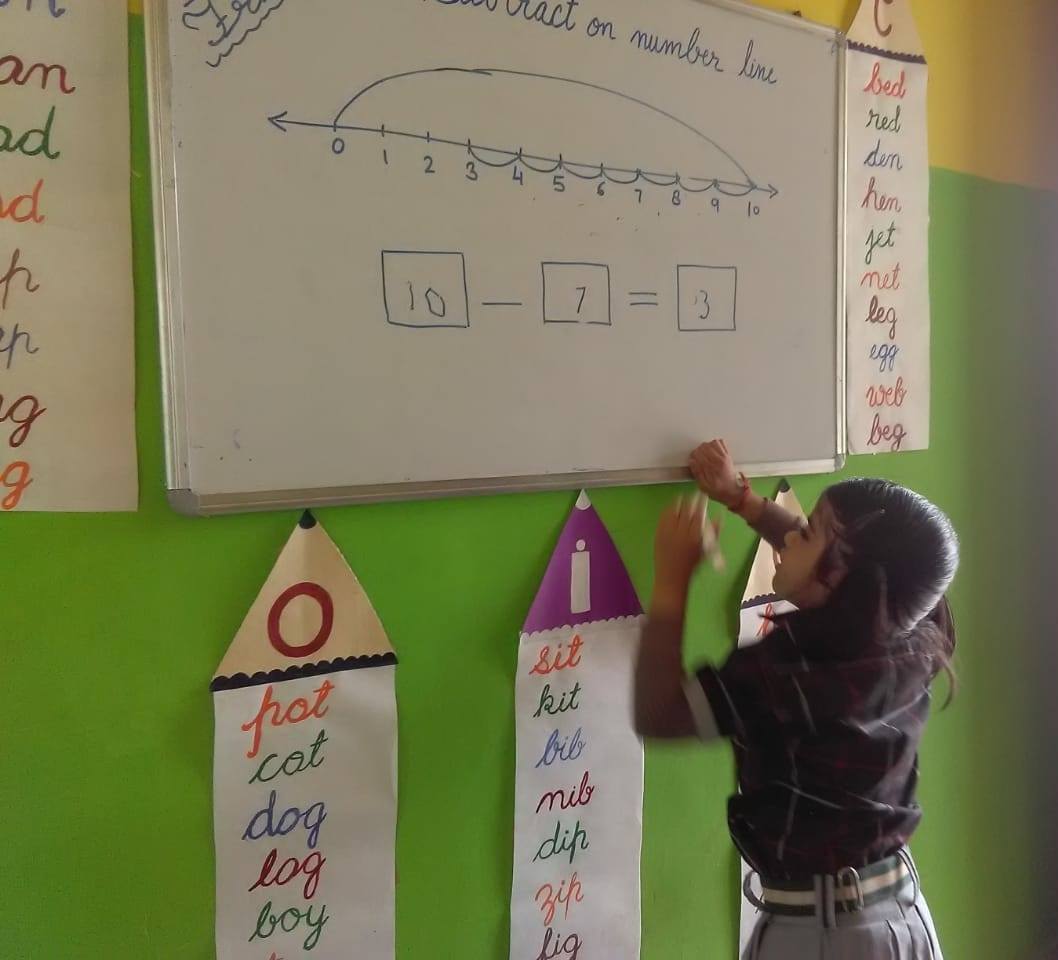 Subtract on number line
0 1 2 3 4 5 6 7 8 9 10
10 — 7 = 3
an
ad
g
bed
red
den
hen
jet
net
leg
egg
web
beg
O
pot
cot
dog
log
boy
i
sit
kit
bib
nib
dip
zip